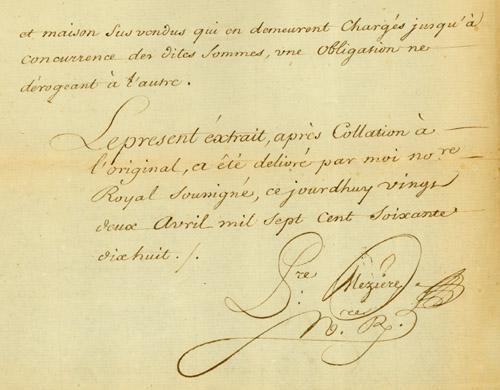 et maison susvendus qui en demeurent Chargés jusqu'à
concurrence des dites Sommes, une Obligation ne
dérogeant à l'autre.
Le present éxtrait, après Collation à
l'original, a été delivré par moi no.re
Royal Soussigné, ce jourdhuy vingt
deux Avril mil sept Cent Soixante
dixhuit ./.
P.re Mézière
N. R.